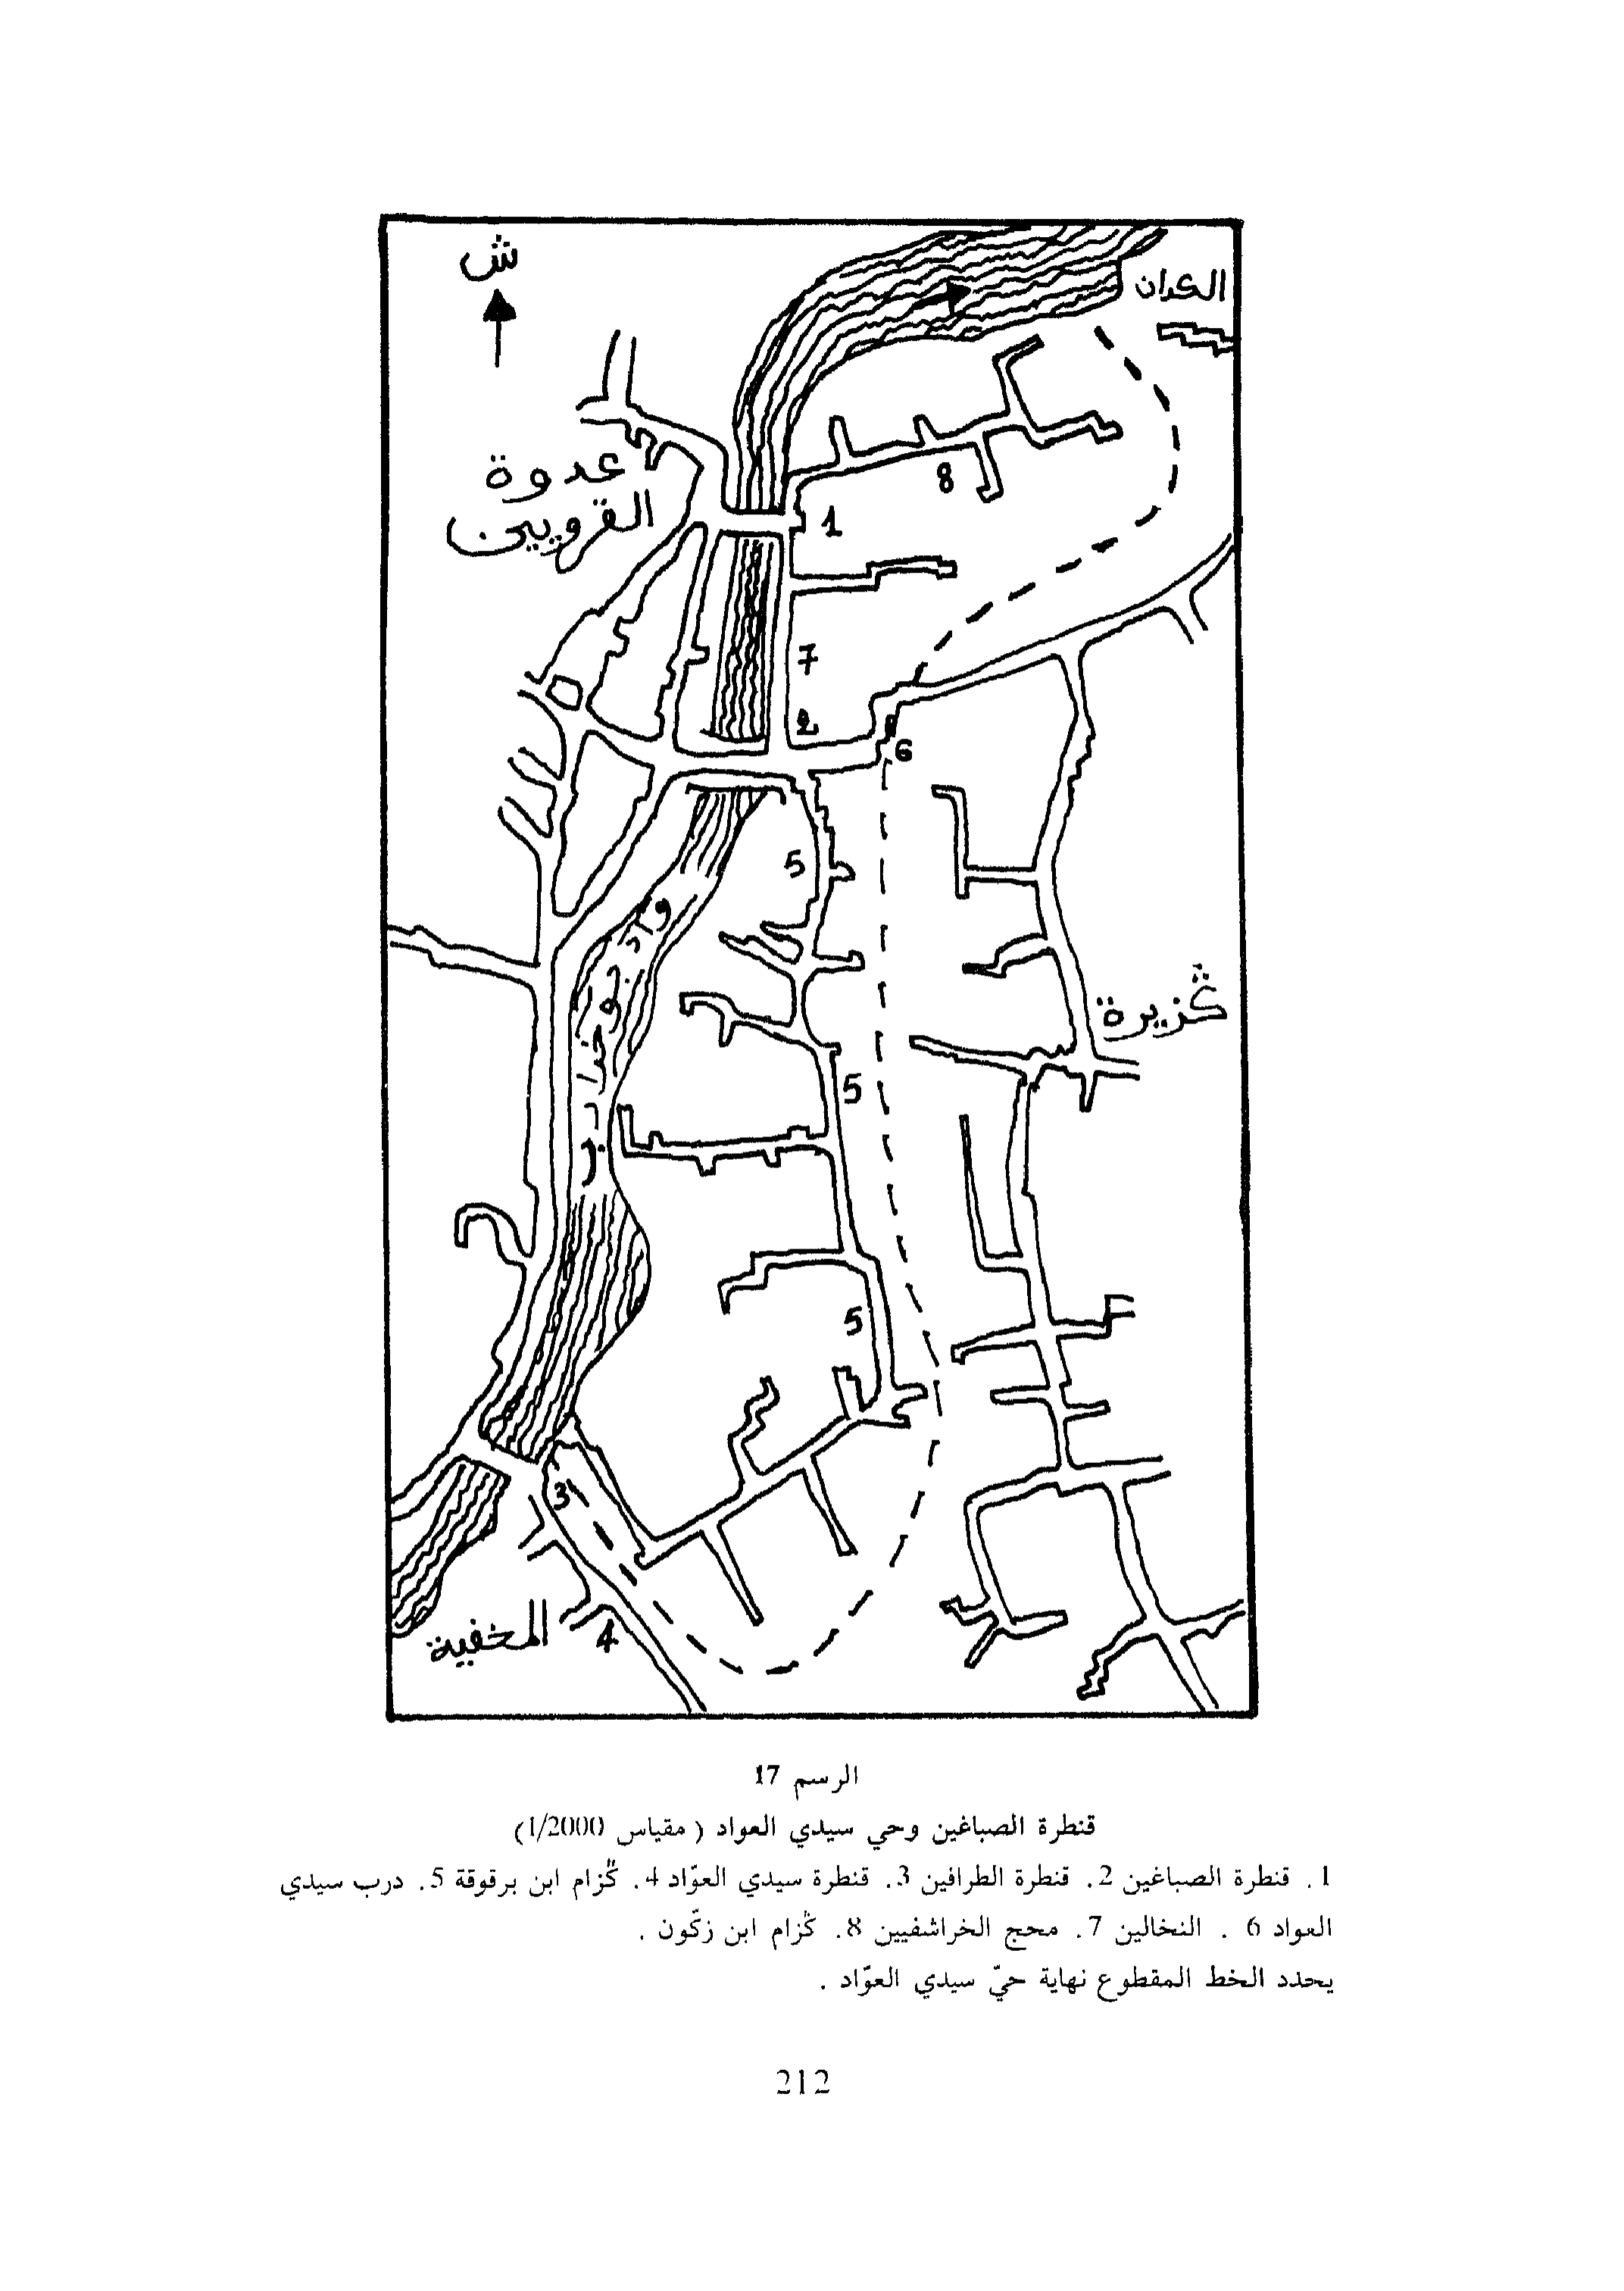 ش
الكدان
عدوة
القرويين
8
1
7
2
6
5
واد بوخرارب
ڭزيرة
5
5
3
4
المخفية
الرسم 17
قنطرة الصباغين وحي سيدي العواد ( مقياس 1/2000)
1 . قنطرة الصباغين 2. قنطرة الطرافين 3. قنطرة سيدي العوّاد 4. ڭزام ابن برقوقة 5. درب سيدي
العواد 6 . النخالين 7. محج الخراشفيين 8. ڭزام ابن زكّون .
يحدد الخط المقطوع نهاية حيّ سيدي العوّاد .
212